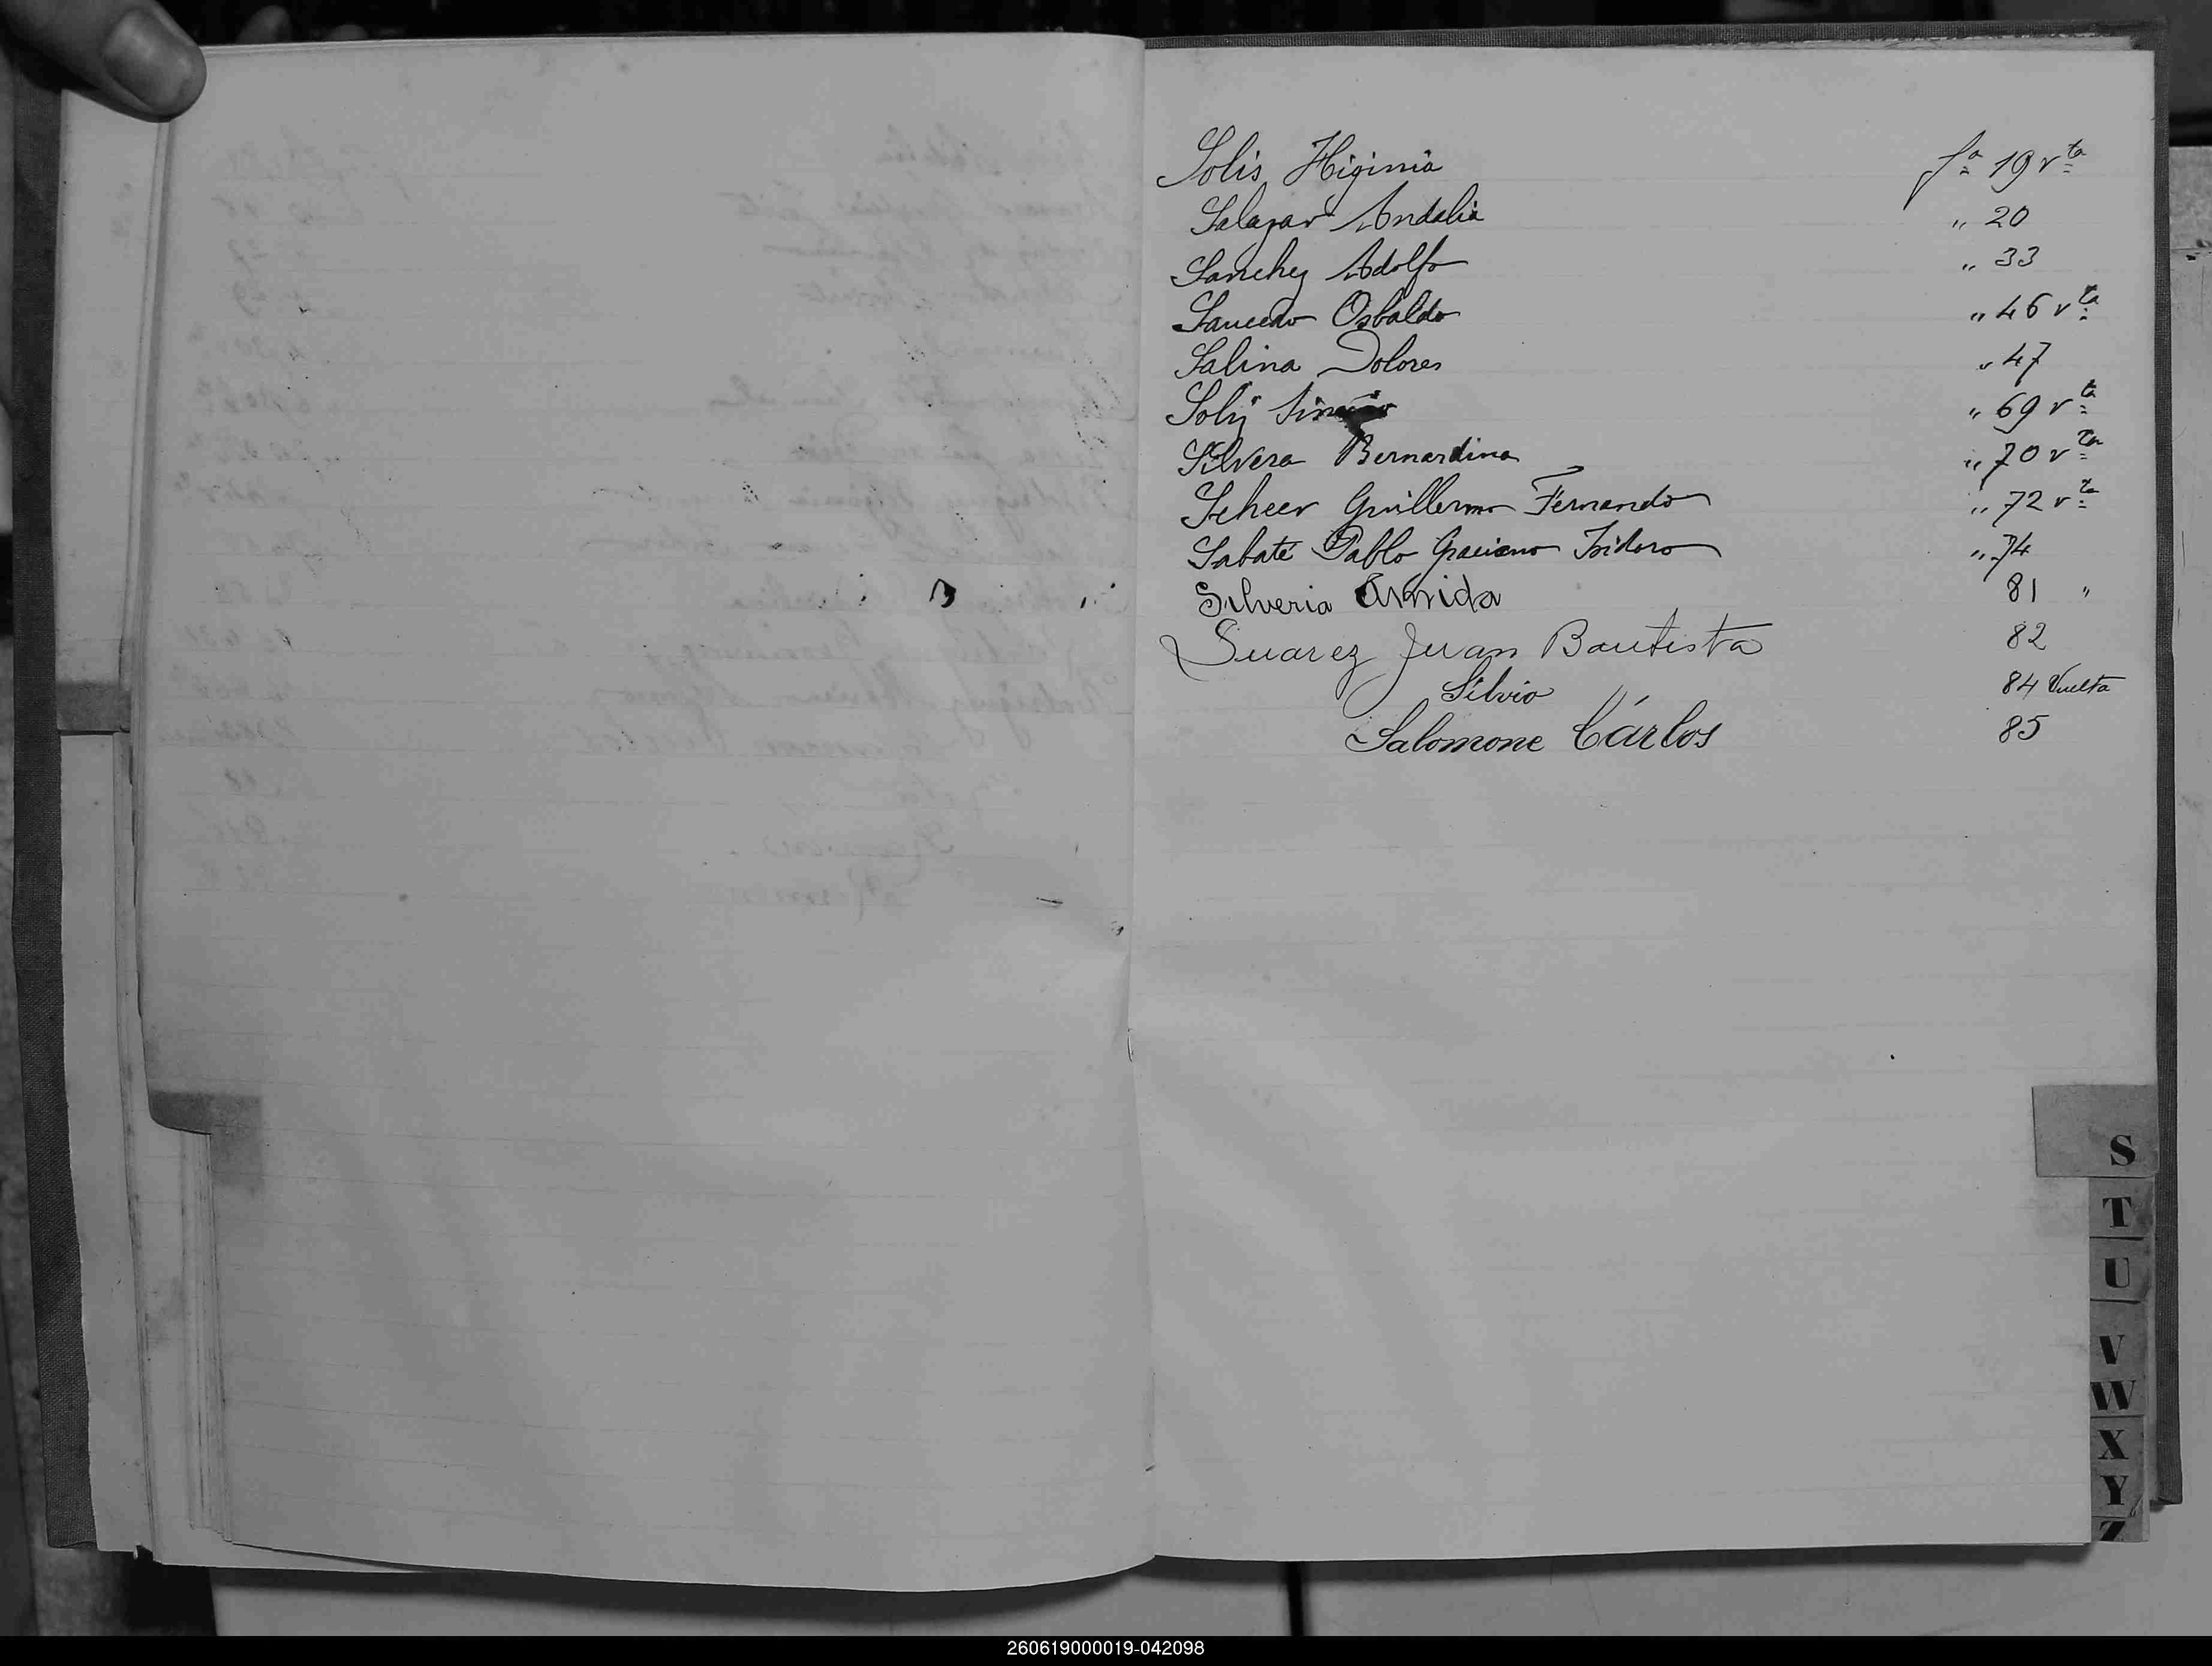 Solis Higinia fª 19 vta
Salazar Andalia " 20
Sanchez Adolfo " 33
Saucedo Osbaldo " 46 vta
Salina Dolores " 47
Solis " 69 vta
Silvera Bernardina " 70 vta
Scheer Guillermo Fernando " 72 vta
Sabaté Pablo Graciano Isidoro " 74
Silveria Armida 81 "
Suarez Juan Bautista 82
Silvio 84 Vuelta
Salomone Cárlos 85
S
T
U
V
W
X
Y
Z
260619000019-042098